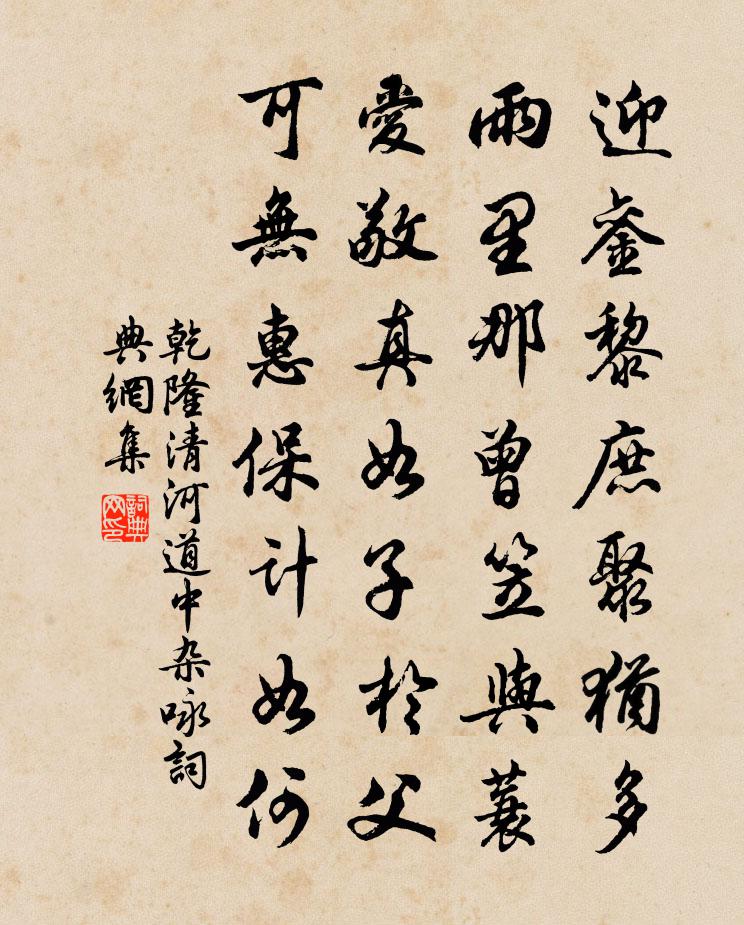 迎銮黎庶聚猶多
雨里那曾笠與蓑
愛敬真如子於父
可無惠保計如何
乾隆清河道中杂咏詞
典網集
詞典
网印